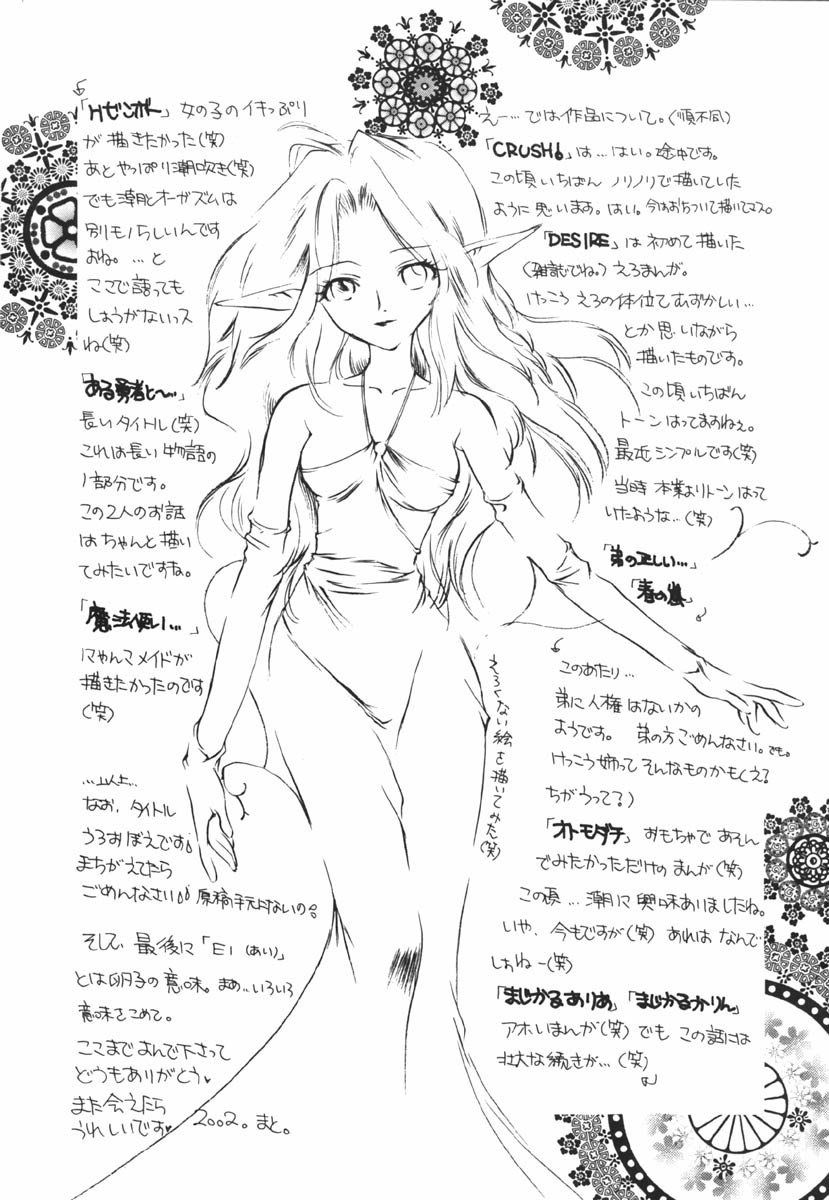 えー…では作品について。(順不同)
「CRUSH!」は…はい。途中です。
この頃いちばん ノリノリで描いていた
ように思います。はい。今はおちついて描いてマス。
「DESIRE」は初めて描いた
(雑誌でね。)えろまんが。
けっこう えろの体位てむずかしい…
とか思いながら
描いたものです。
この頃いちばん
トーンはってますねぇ。
最近シンプルです(笑)
当時 本業よりトーンはって
いたような…(笑)
「弟の正しい…」
「春の嵐」
このあたり…
弟に人権はないかの
ようです。 弟の方ごめんなさい。でも。
けっこう姉って そんなものかもよ(え?
ちがうって?)
「オトモダチ」 おもちゃで あそん
でみたかっただけの まんが(笑)
この頃…潮に興味ありましたね。
いや、今もですが(笑) あれは なんで
しょねー(笑)
「まじかるありあ」「まじかるかりん」
アホいまんが(笑) でも この話には
壮大な続きが…(笑)
「Hゼンボー」 女の子のイキっぷり
が描きたかった(笑)
あと やっぱり潮吹き(笑)
でも潮とオーガズムは
別モノらしいんです
よね。…と
ここで語っても
しょうがないっス
ね(笑)
「ある勇者と〜…」
長いタイトル(笑)
これは長い物語の
1部分です。
この2人のお話
はちゃんと描い
てみたいですね。
「魔法使い…」
にゃんこメイドが
描きたかったのです
(笑)
…以上…
なお、タイトル
うろおぼえです。
まちがえてたら
ごめんなさい。原稿手元にないの。
そして、最後に「EI(あい)」
とは卵子の意味。まぁ…いろいろ
意味をこめて。
ここまでよんで下さって
どうもありがとう♥
また会えたら
うれしいです♥ 2002。まと。
えろくない絵を描いてみた(笑)